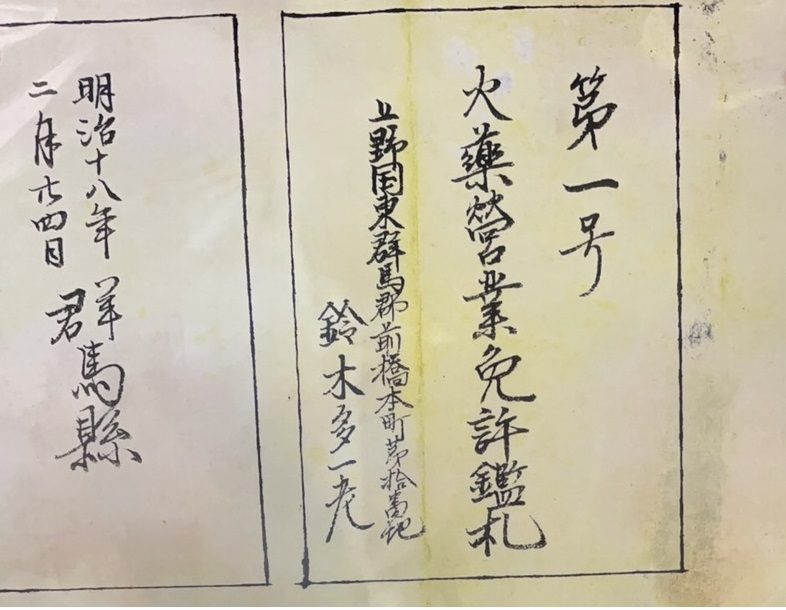 第一号
火藥營業免許鑑札
上野国東群馬郡前橋本町第拾番地
鈴木多一老
明治十八年
二月廿四日
群馬縣